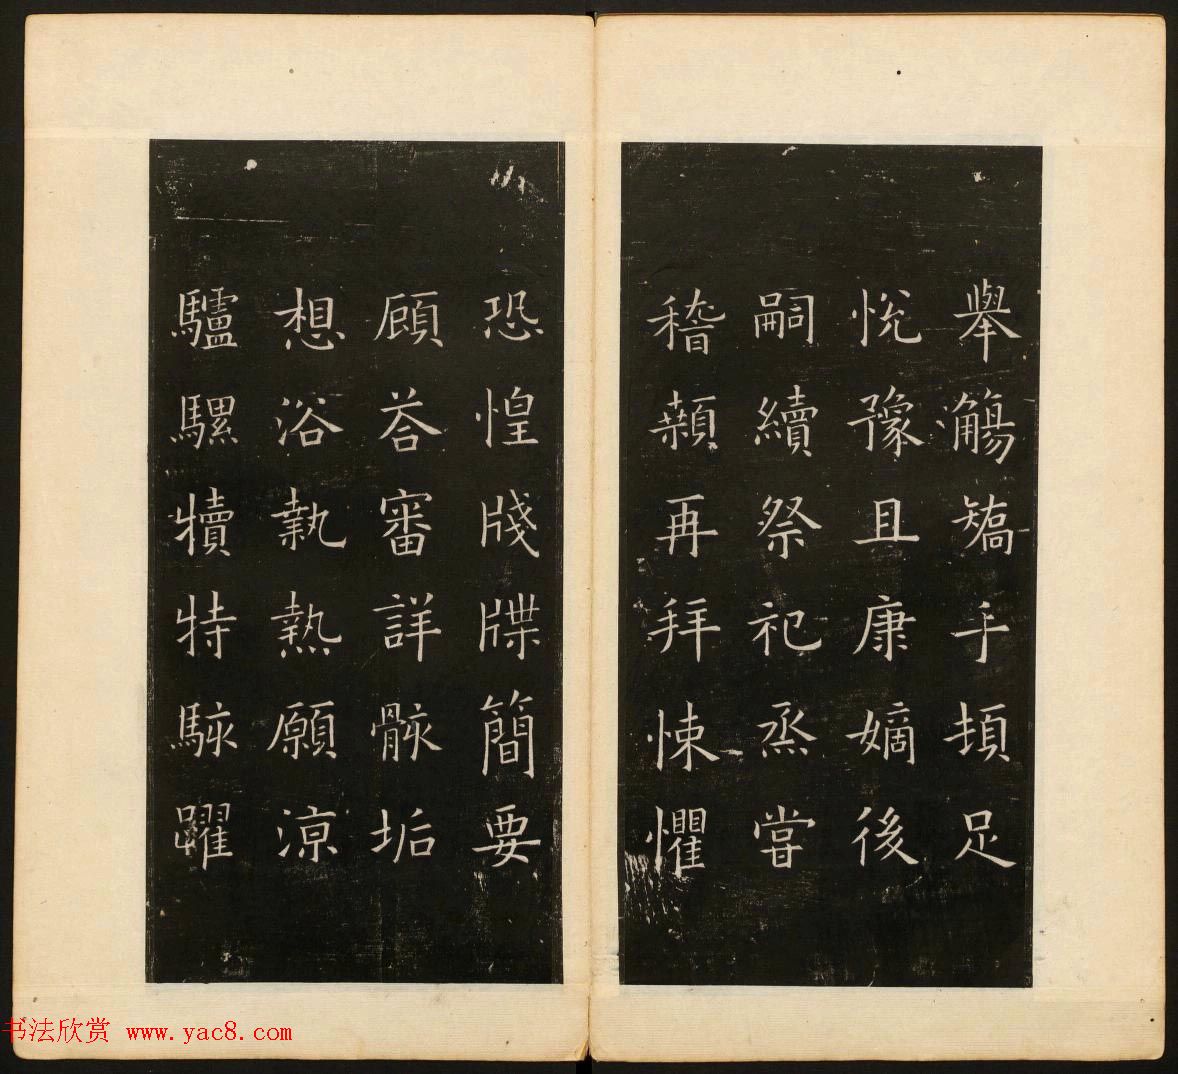 舉觴矯手頓足
悅豫且康嫡後
嗣續祭祀烝嘗
稽顙再拜悚懼
恐惶牋牒簡要
顧荅審詳骸垢
想浴執熱願涼
驢騾犢特駭躍
书法欣赏 www.yac8.com